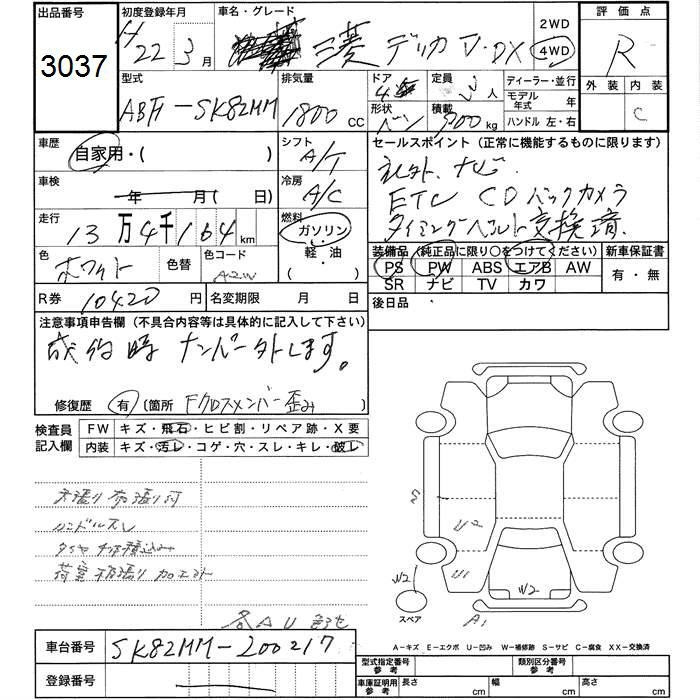 出品番号 3037
初度登録年月 H 22年 3月
車名・グレード 三菱 デリカ V・DX
2WD 4WD
評価点 R
外装 内装 C
型式 ABF-SK82MM
排気量 1800 CC
ドア 4
形状 バン
定員 人
積載 kg
ディーラー・並行
モデル年式 年
ハンドル 左・右
車歴 自家用・( )
シフト A/T
セールスポイント(正常に機能するものに限ります)
社外ナビ
ETC CD バックカメラ
タイミングベルト交換済
車検 年 月( 日)
冷房 A/C
走行 13万4千164 km
燃料 ガソリン・軽・油・( )
色 ホワイト 色替 色コード A2W
装備品(純正品に限り○をつけてください)
PS PW ABS エアB AW
SR ナビ TV カワ
新車保証書 有・無
R券 10420 円
名変期限 月 日
後日品
注意事項申告欄(不具合内容等は具体的に記入して下さい)
成約時 ナンバー外します。
修復歴 有(箇所 Fクロスメンバー歪み)
検査員記入欄
FW キズ・飛石・ヒビ割・リペア跡・X要
内装 キズ・汚レ・コゲ・穴・スレ・キレ・破レ
ハンドルスレ
荷室 板張り 加工
各AU
W2
U1
W2
A1
スペア
車台番号 SK82MM-200217
登録番号
A-キズ E-エクボ U-凹み W-補修跡 S-サビ C-腐食 XX-交換済
型式指定番号 参考
類別区分番号 参考
車庫証明用 参考 長さ cm 幅 cm 高さ cm